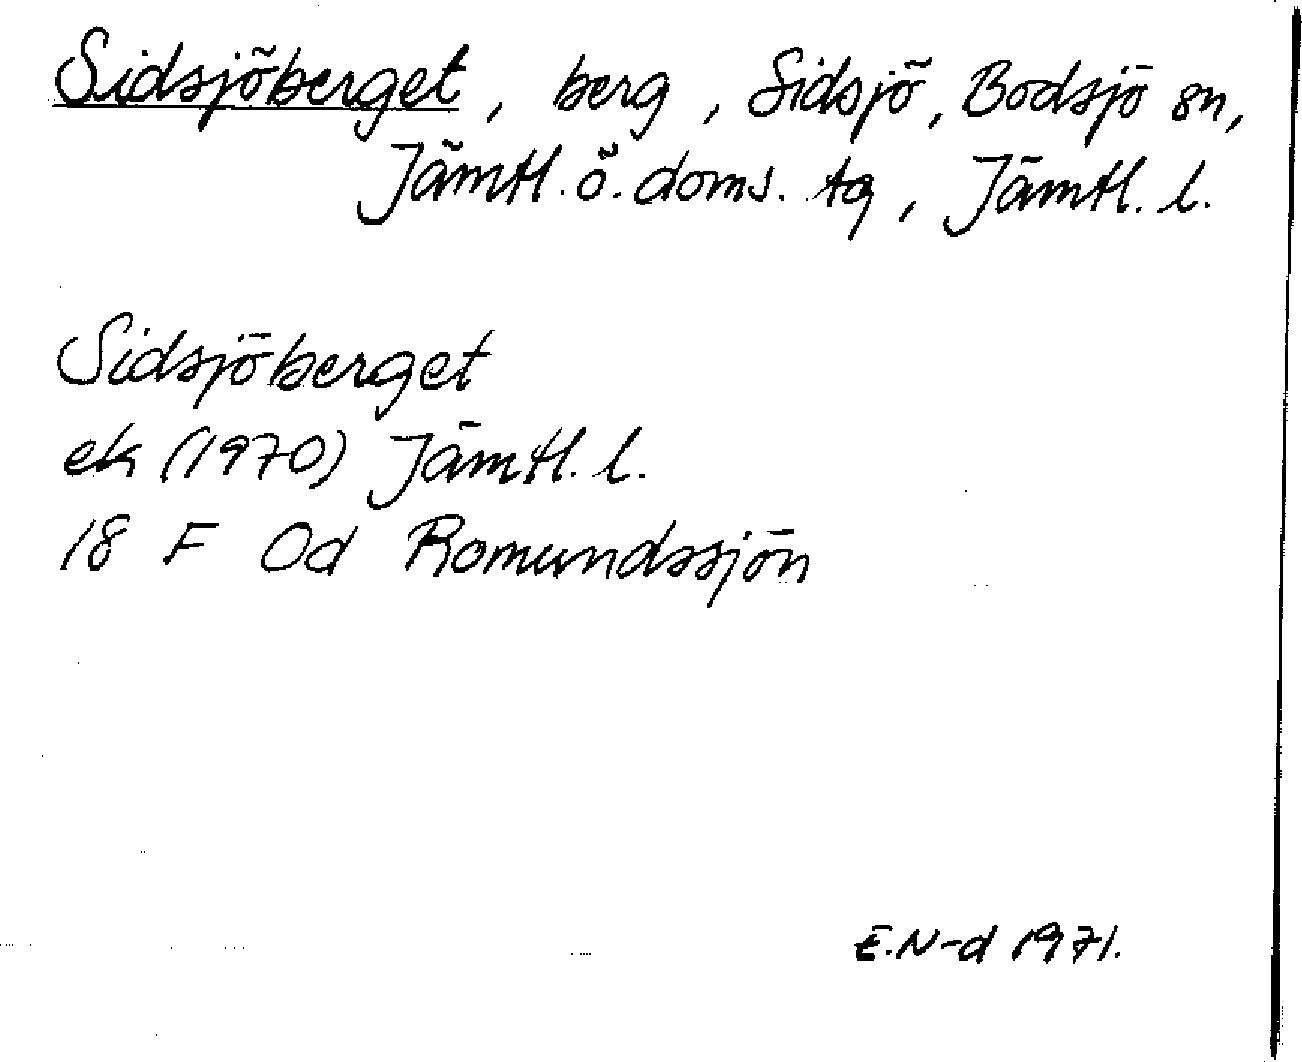 Sidsjöberget, berg, Sidsjö, Bodsjö sn,
Jämtl. ö. doms. tg, Jämtl. l.
Sidsjöberget
ek (1970) Jämtl. l.
18 F Od Romundssjön
E.N-d 1971.